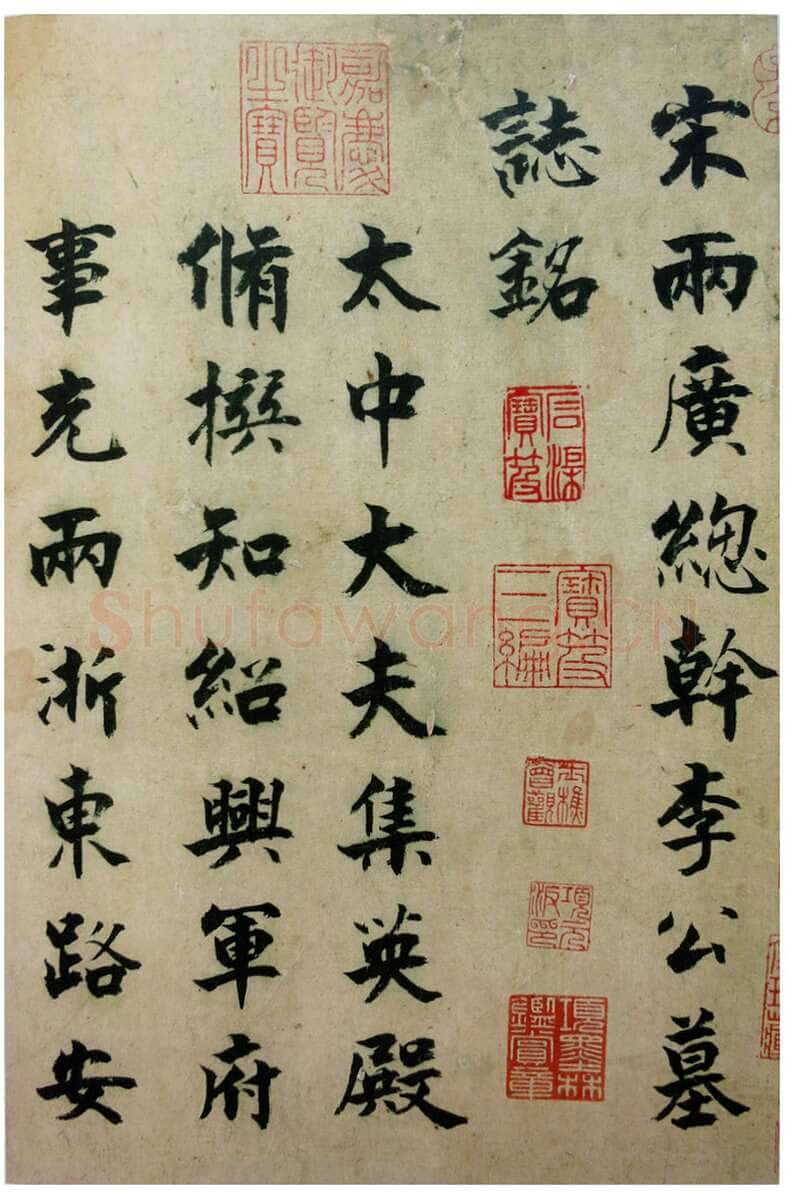 宋兩廣總幹李公墓
誌銘
太中大夫集英殿
脩撰知紹興軍府
事充兩浙東路安
嘉慶御覽之寶
石渠寶笈
寶笈三編
項元汴印
項墨林鑑賞章
Shufawang.CN